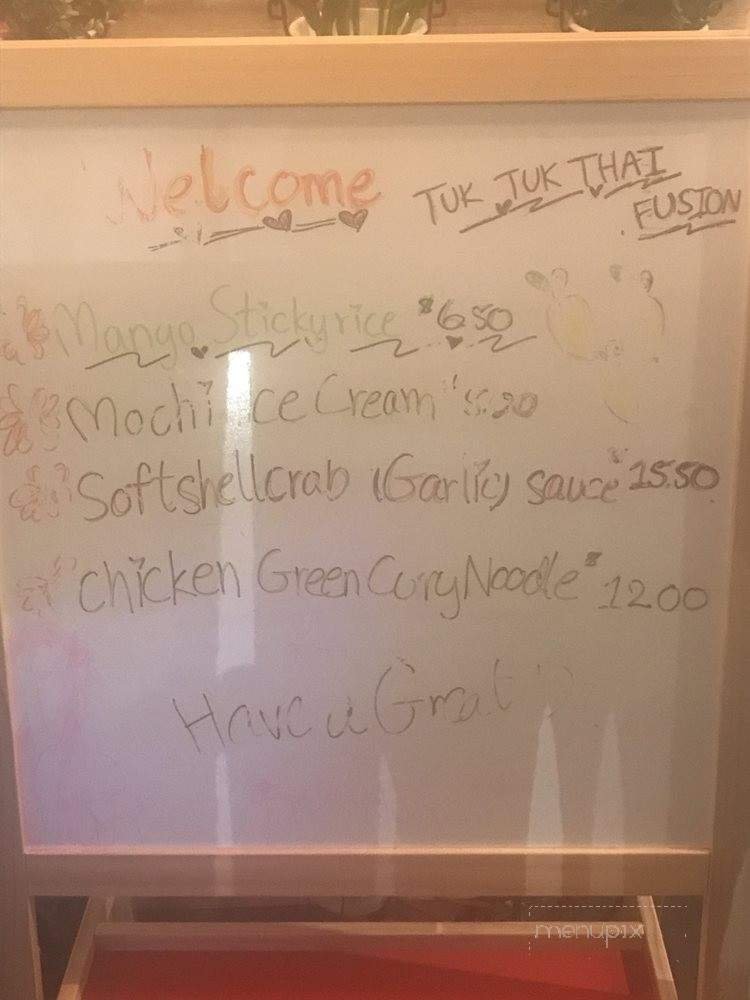 Welcome TUK TUK THAI FUSION
Mango Stickyrice $6.50
Mochi ice Cream $5.20
Softshellcrab (Garlic) sauce $15.50
Chicken Green Curry Noodle $12.00
Have a Great
menupix